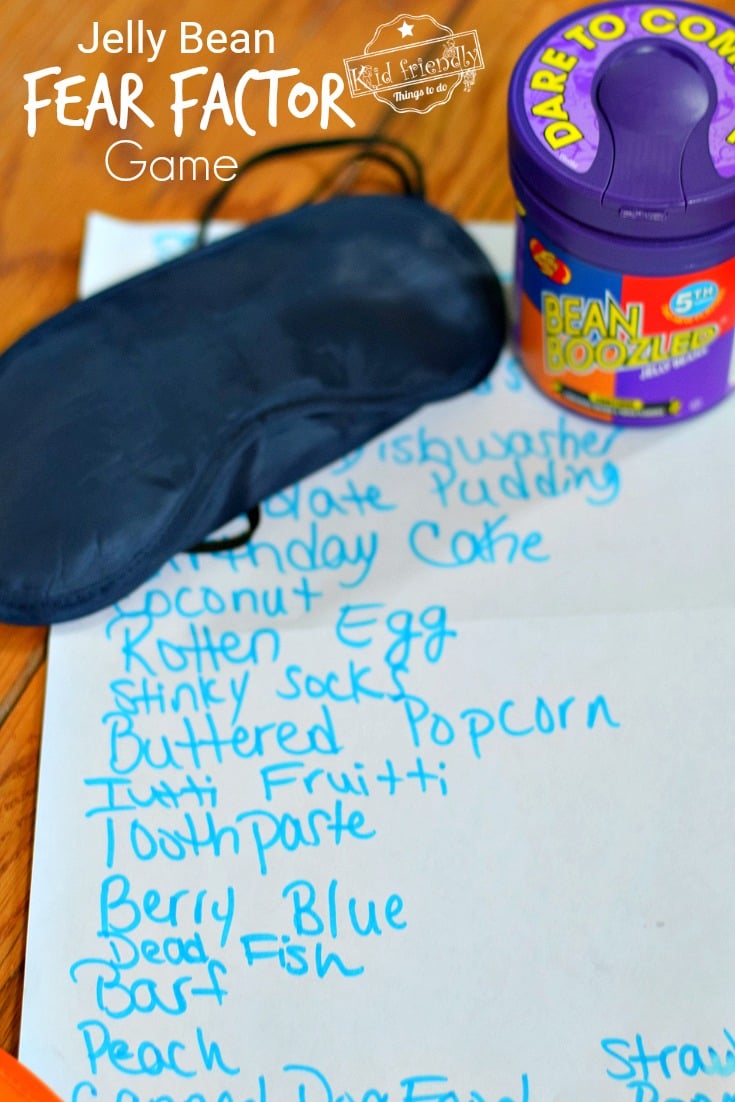 Jelly Bean
FEAR FACTOR
Game
Kid friendly
Things to do
DARE TO COM
BEAN
BOOZLED
JELLY BEANS
5TH
Dishwasher
late Pudding
Birthday Cake
Coconut
Rotten Egg
Stinky Socks
Buttered Popcorn
Tutti Fruitti
Toothpaste
Berry Blue
Dead Fish
Barf
Peach
Straw
Canned Dog Food